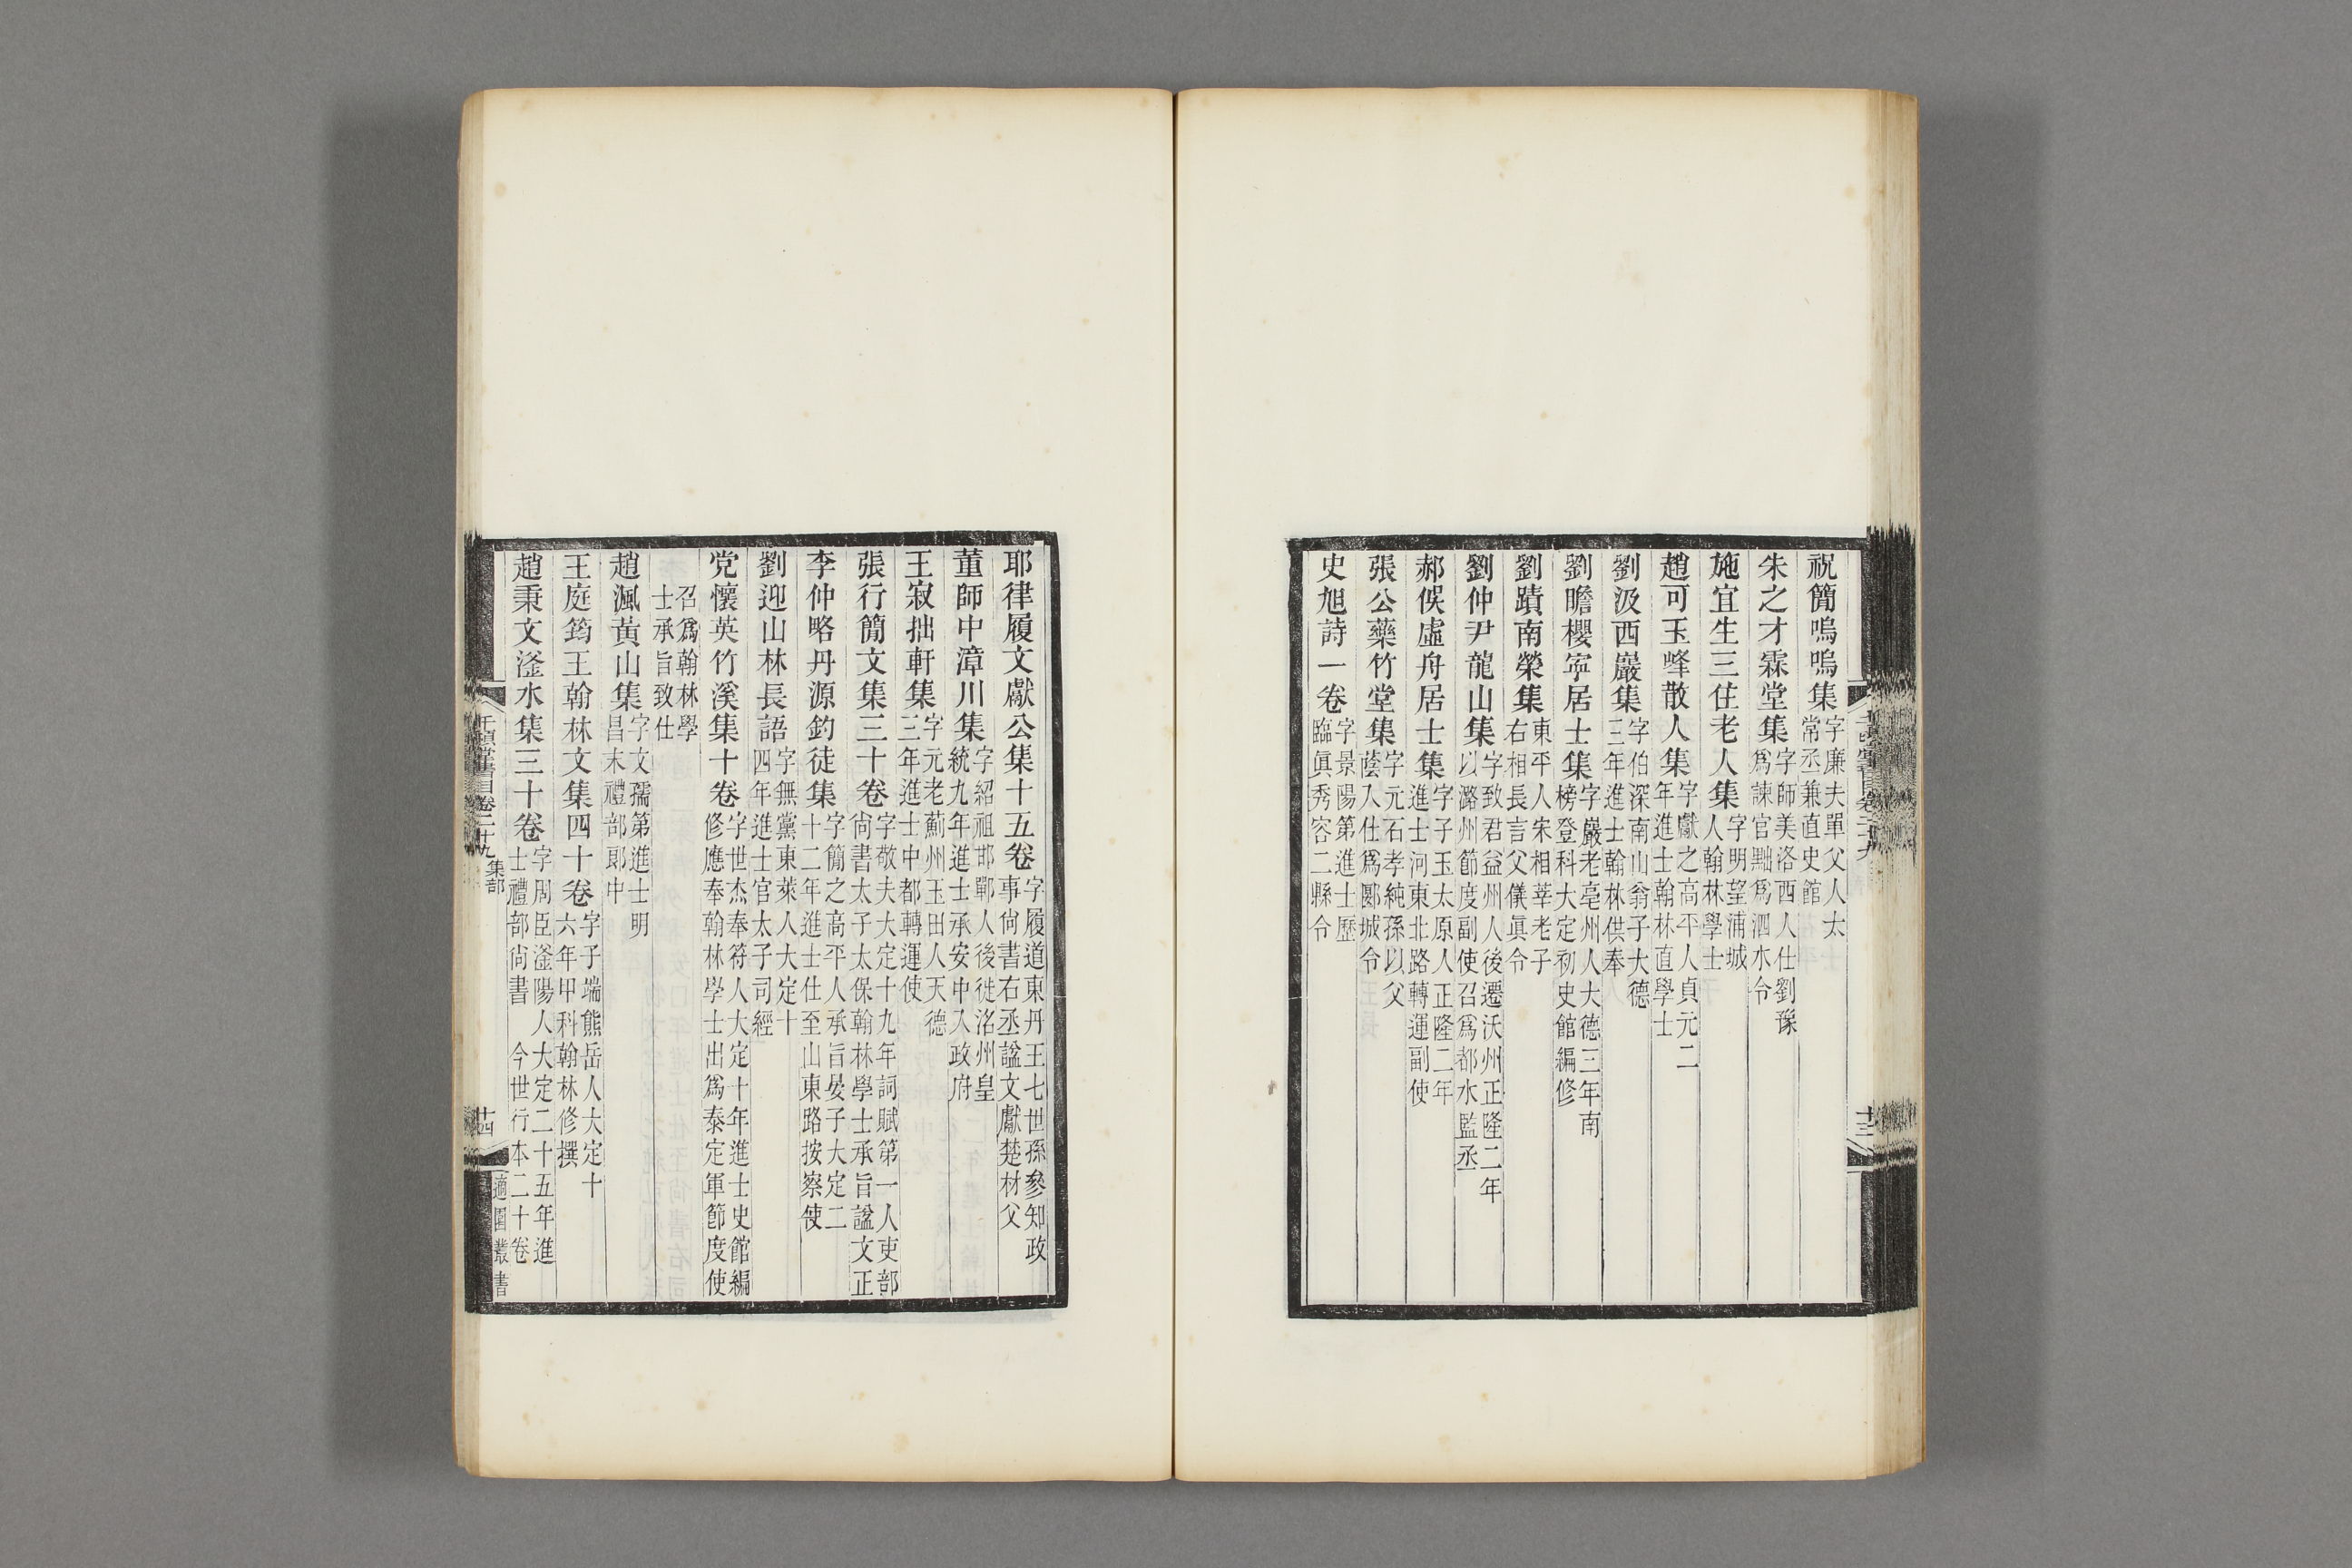 祝簡嗚嗚集字廉夫單父人太常丞兼直史館
朱之才霖堂集字師美洛西人仕劉豫爲諫官黜爲泗水令
施宜生三住老人集字明望浦城人翰林學士
趙可玉峰散人集字獻之高平人貞元二年進士翰林直學士
劉汲西巖集字伯深南山翁子大德三年進士翰林供奉
劉瞻櫻寧居士集字巖老亳州人大德三年南榜登科大定初史館編修
劉蹟南榮集東平人宋相莘老子右相長言父儀眞令
劉仲尹龍山集字致君益州人後遷沃州正隆二年以潞州節度副使召爲都水監丞
郝俣虛舟居士集字子玉太原人正隆二年進士河東北路轉運副使
張公藥竹堂集字元石孝純孫以父蔭入仕爲郾城令
史旭詩一卷字景陽第進士歷臨眞秀容二縣令
十三
耶律履文獻公集十五卷字履道東丹王七世孫參知政事尙書右丞諡文獻楚材父
董師中漳川集字紹祖邯鄲人後徙洺州皇統九年進士承安中入政府
王寂拙軒集字元老薊州玉田人天德三年進士中都轉運使
張行簡文集三十卷字敬夫大定十九年詞賦第一人吏部尙書太子太保翰林學士承旨諡文正
李仲略丹源釣徒集字簡之高平人承旨晏子大定二十二年進士仕至山東路按察使
劉迎山林長語字無黨東萊人大定十四年進士官太子司經
党懷英竹溪集十卷字世杰奉符人大定十年進士史館編修應奉翰林學士出爲泰定軍節度使
召爲翰林學士承旨致仕
趙渢黃山集字文孺第進士明昌末禮部郎中
王庭筠王翰林文集四十卷字子端熊岳人大定十六年甲科翰林修撰
趙秉文滏水集三十卷字周臣滏陽人大定二十五年進士禮部尙書　今世行本二十卷
千頃堂書目卷二十九　集部
十四
適園叢書